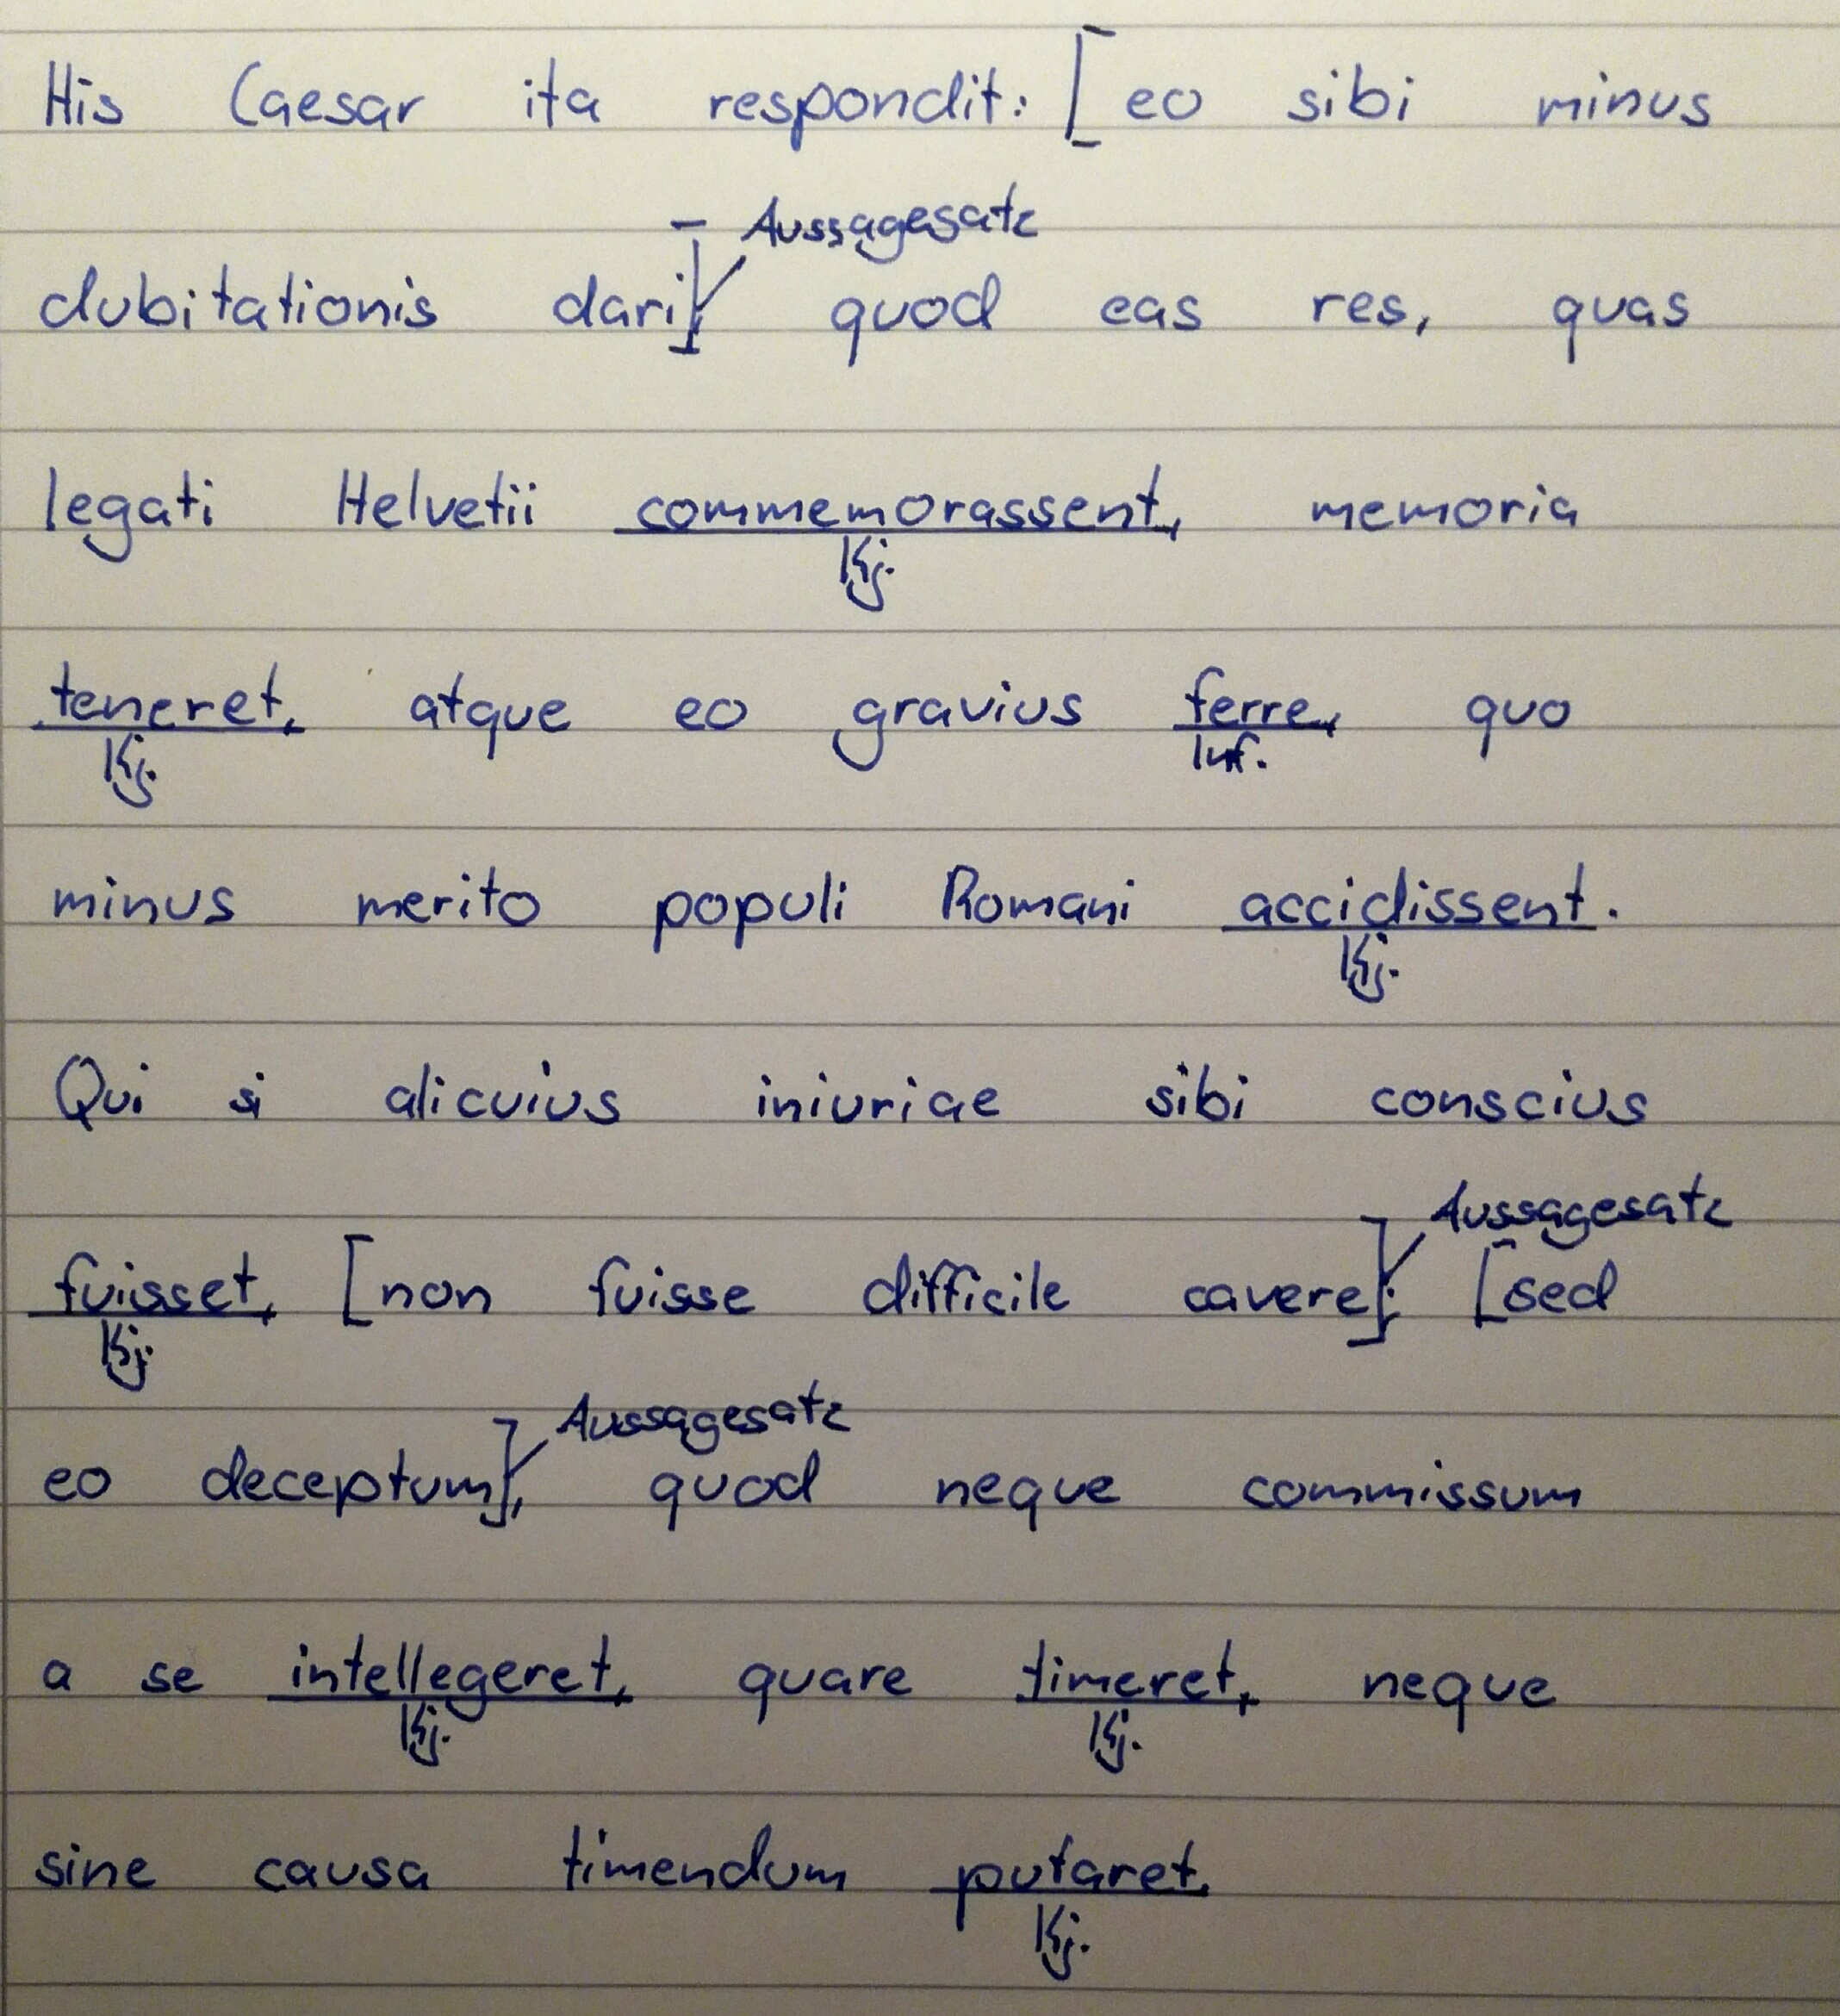 His Caesar ita respondit: [eo sibi minus
Aussagesatz
dubitationis dari], quod eas res, quas
legati Helvetii commemorassent, memoria
Kj.
teneret, atque eo gravius ferre, quo
Kj. Inf.
minus merito populi Romani accidissent.
Kj.
Qui si alicuius iniuriae sibi conscius
Aussagesatz
fuisset, [non fuisse difficile cavere]; [sed
Kj.
Aussagesatz
eo deceptum], quod neque commissum
a se intellegeret, quare timeret, neque
Kj. Kj.
sine causa timendum putaret.
Kj.